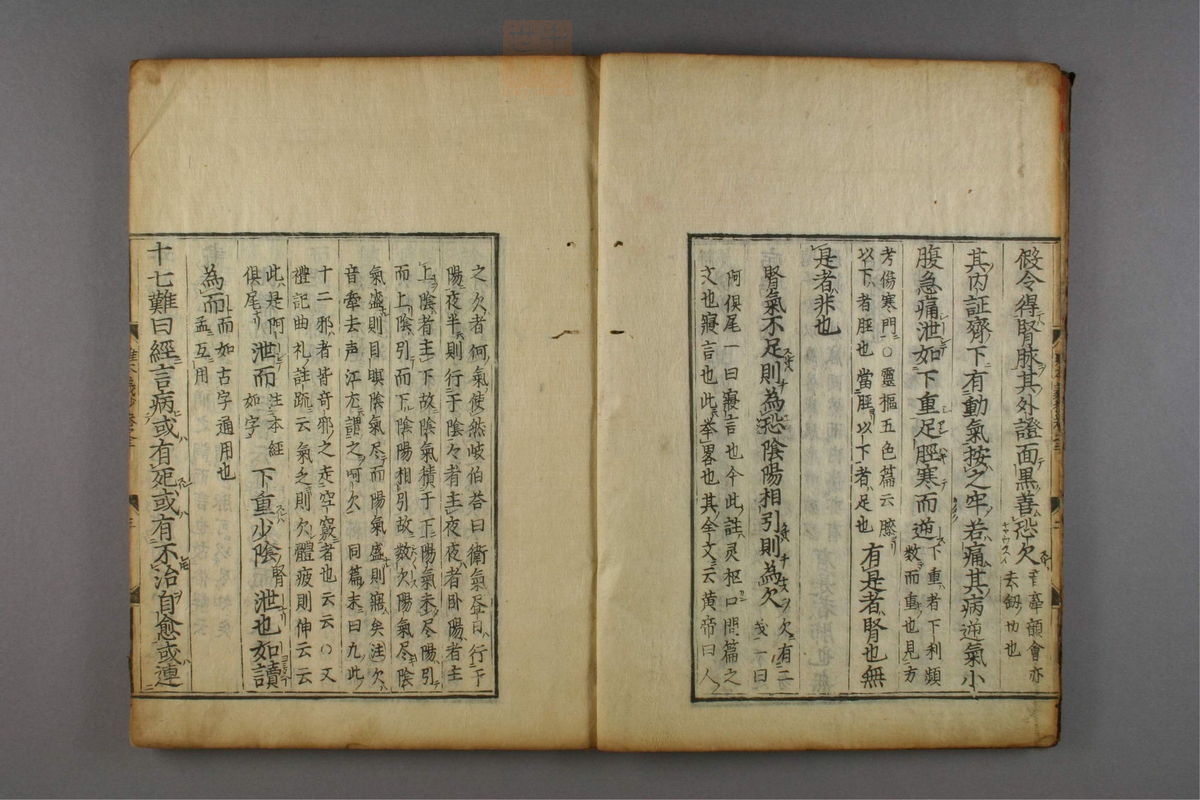 假令得腎脉其外證面黒善恐欠
其内証齊下有動氣按之牢若痛其病逆氣小
腹急痛泄如下重足脛寒而逆
下重者下利頻
数而重也見方
考傷寒門○靈樞五色篇云膝
以下者脛也當脛以下者足也
有是者腎也無
是者非也
腎氣不足則為恐陰陽相引則為欠
欠有二
義一曰
阿俱尾一曰寢言也今此註灵枢口問篇之
文也寢言也此举畧也其全文云黄帝曰人
之欠者何氣使然岐伯荅曰衛氣昼日行于
陽夜半則行于陰々者主夜夜者卧陽者主
上陰者主下故陰氣積于下陽氣未尽陽引
而上陰引而下陰陽相引故数欠陽氣尽陰
氣盛則目瞑陰氣尽而陽氣盛則寤矣注欠
音牽去声江左謂之呵欠同篇末曰九此
十二邪者皆奇邪之走空竅者也云云○又
禮記曲礼註疏云氣乏則欠體疲則伸云云
此是阿
俱尾
注本経
如字
泄而
下重少陰
腎泄也如讀
為而
而如古字通用也
孟互用
十七難曰經言病或有死或有不治自愈或連